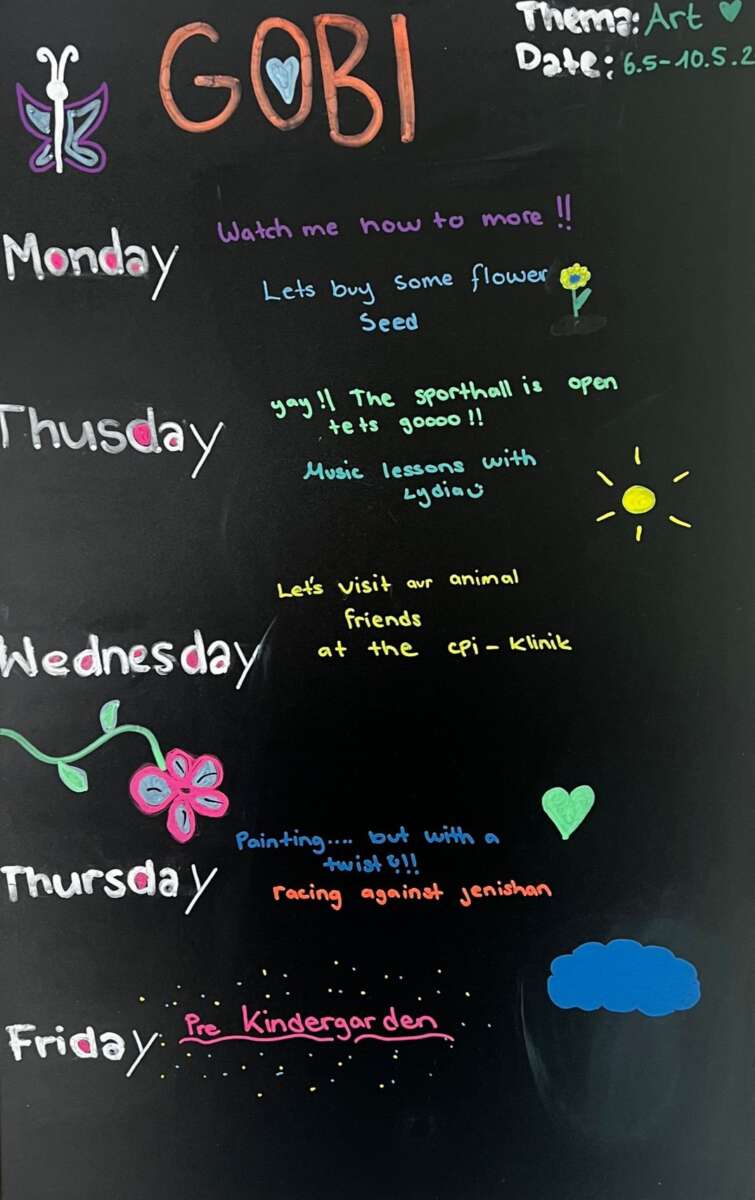 GOBI
Thema: Art
Date: 6.5-10.5.2
Monday
Watch me how to more !!
Lets buy some flower
Seed
Thusday
yay!! The sporthall is open
tets goooo !!
Music lessons with
Lydia
Wednesday
Let's visit our animal
friends
at the epi - Klinik
Thursday
Painting.... but with a
twist!!!
racing against jenishan
Friday
Pre Kindergarden